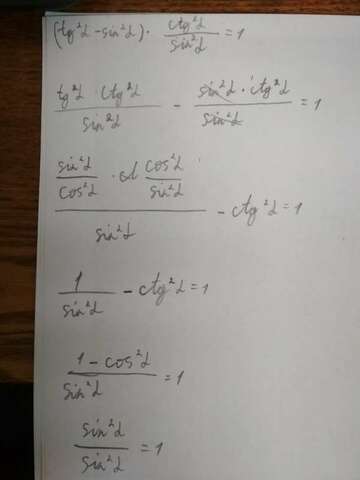 (tg²α - sin²α) · ctg²α / sin²α = 1
tg²α · ctg²α / sin²α - sin²α · ctg²α / sin²α = 1
(sin²α / cos²α · cos²α / sin²α) / sin²α - ctg²α = 1
1 / sin²α - ctg²α = 1
(1 - cos²α) / sin²α = 1
sin²α / sin²α = 1